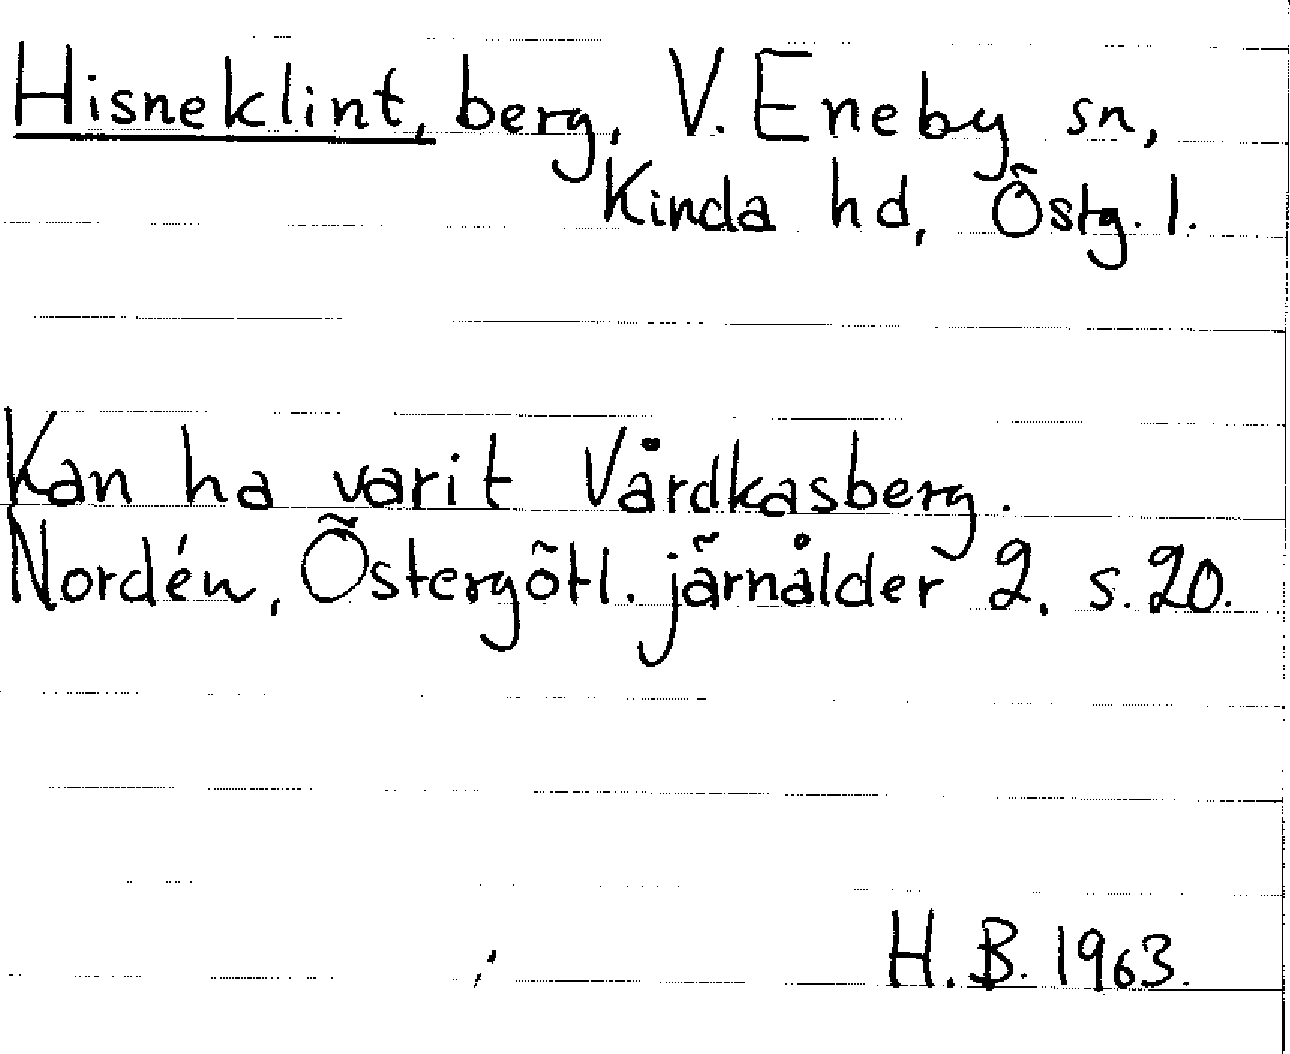 Hisneklint, berg, V. Eneby sn,
Kinda hd, Östg. l.
Kan ha varit Vårdkasberg.
Nordén, Östergötl. järnålder 2. s. 20.
H. B. 1963.